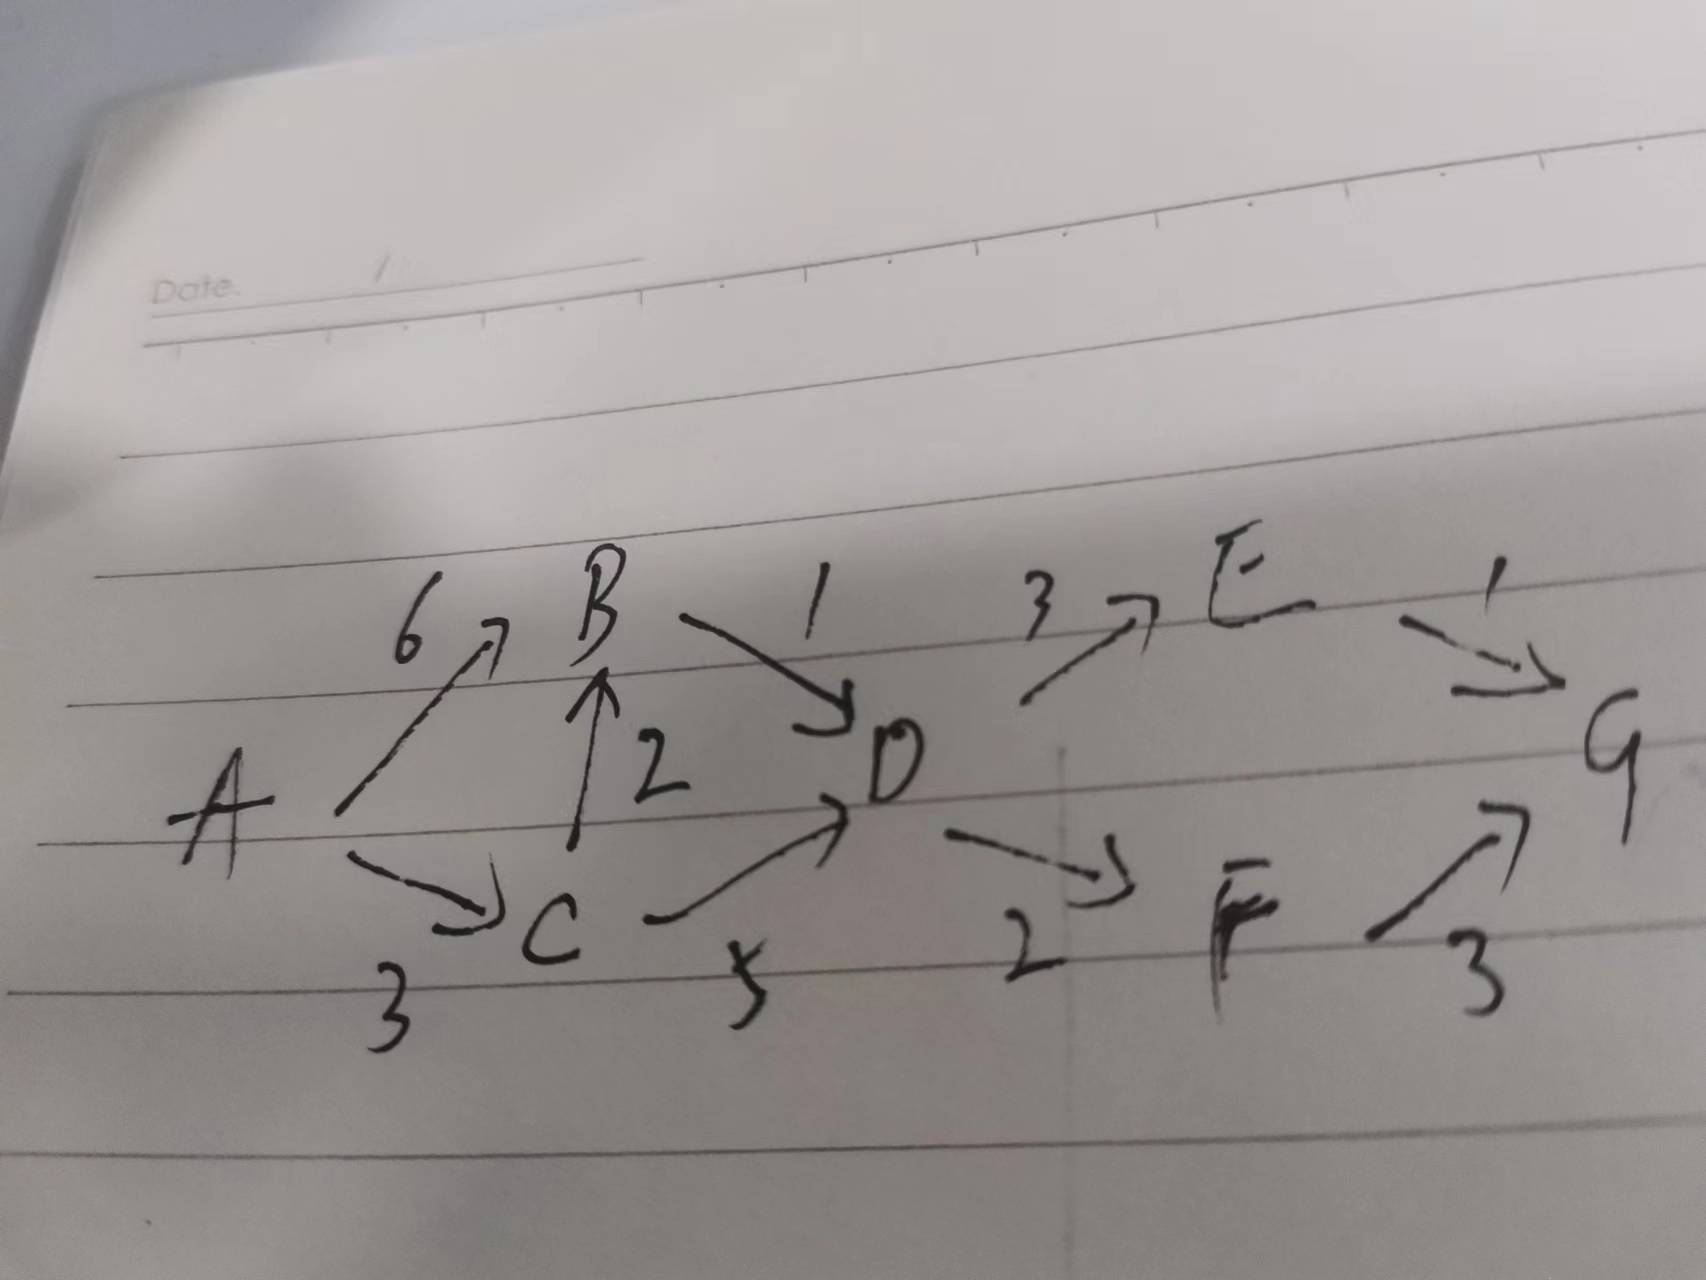 Date. /
6 B 1 3 E 1
A 2 D G
C F
3 5 2 3